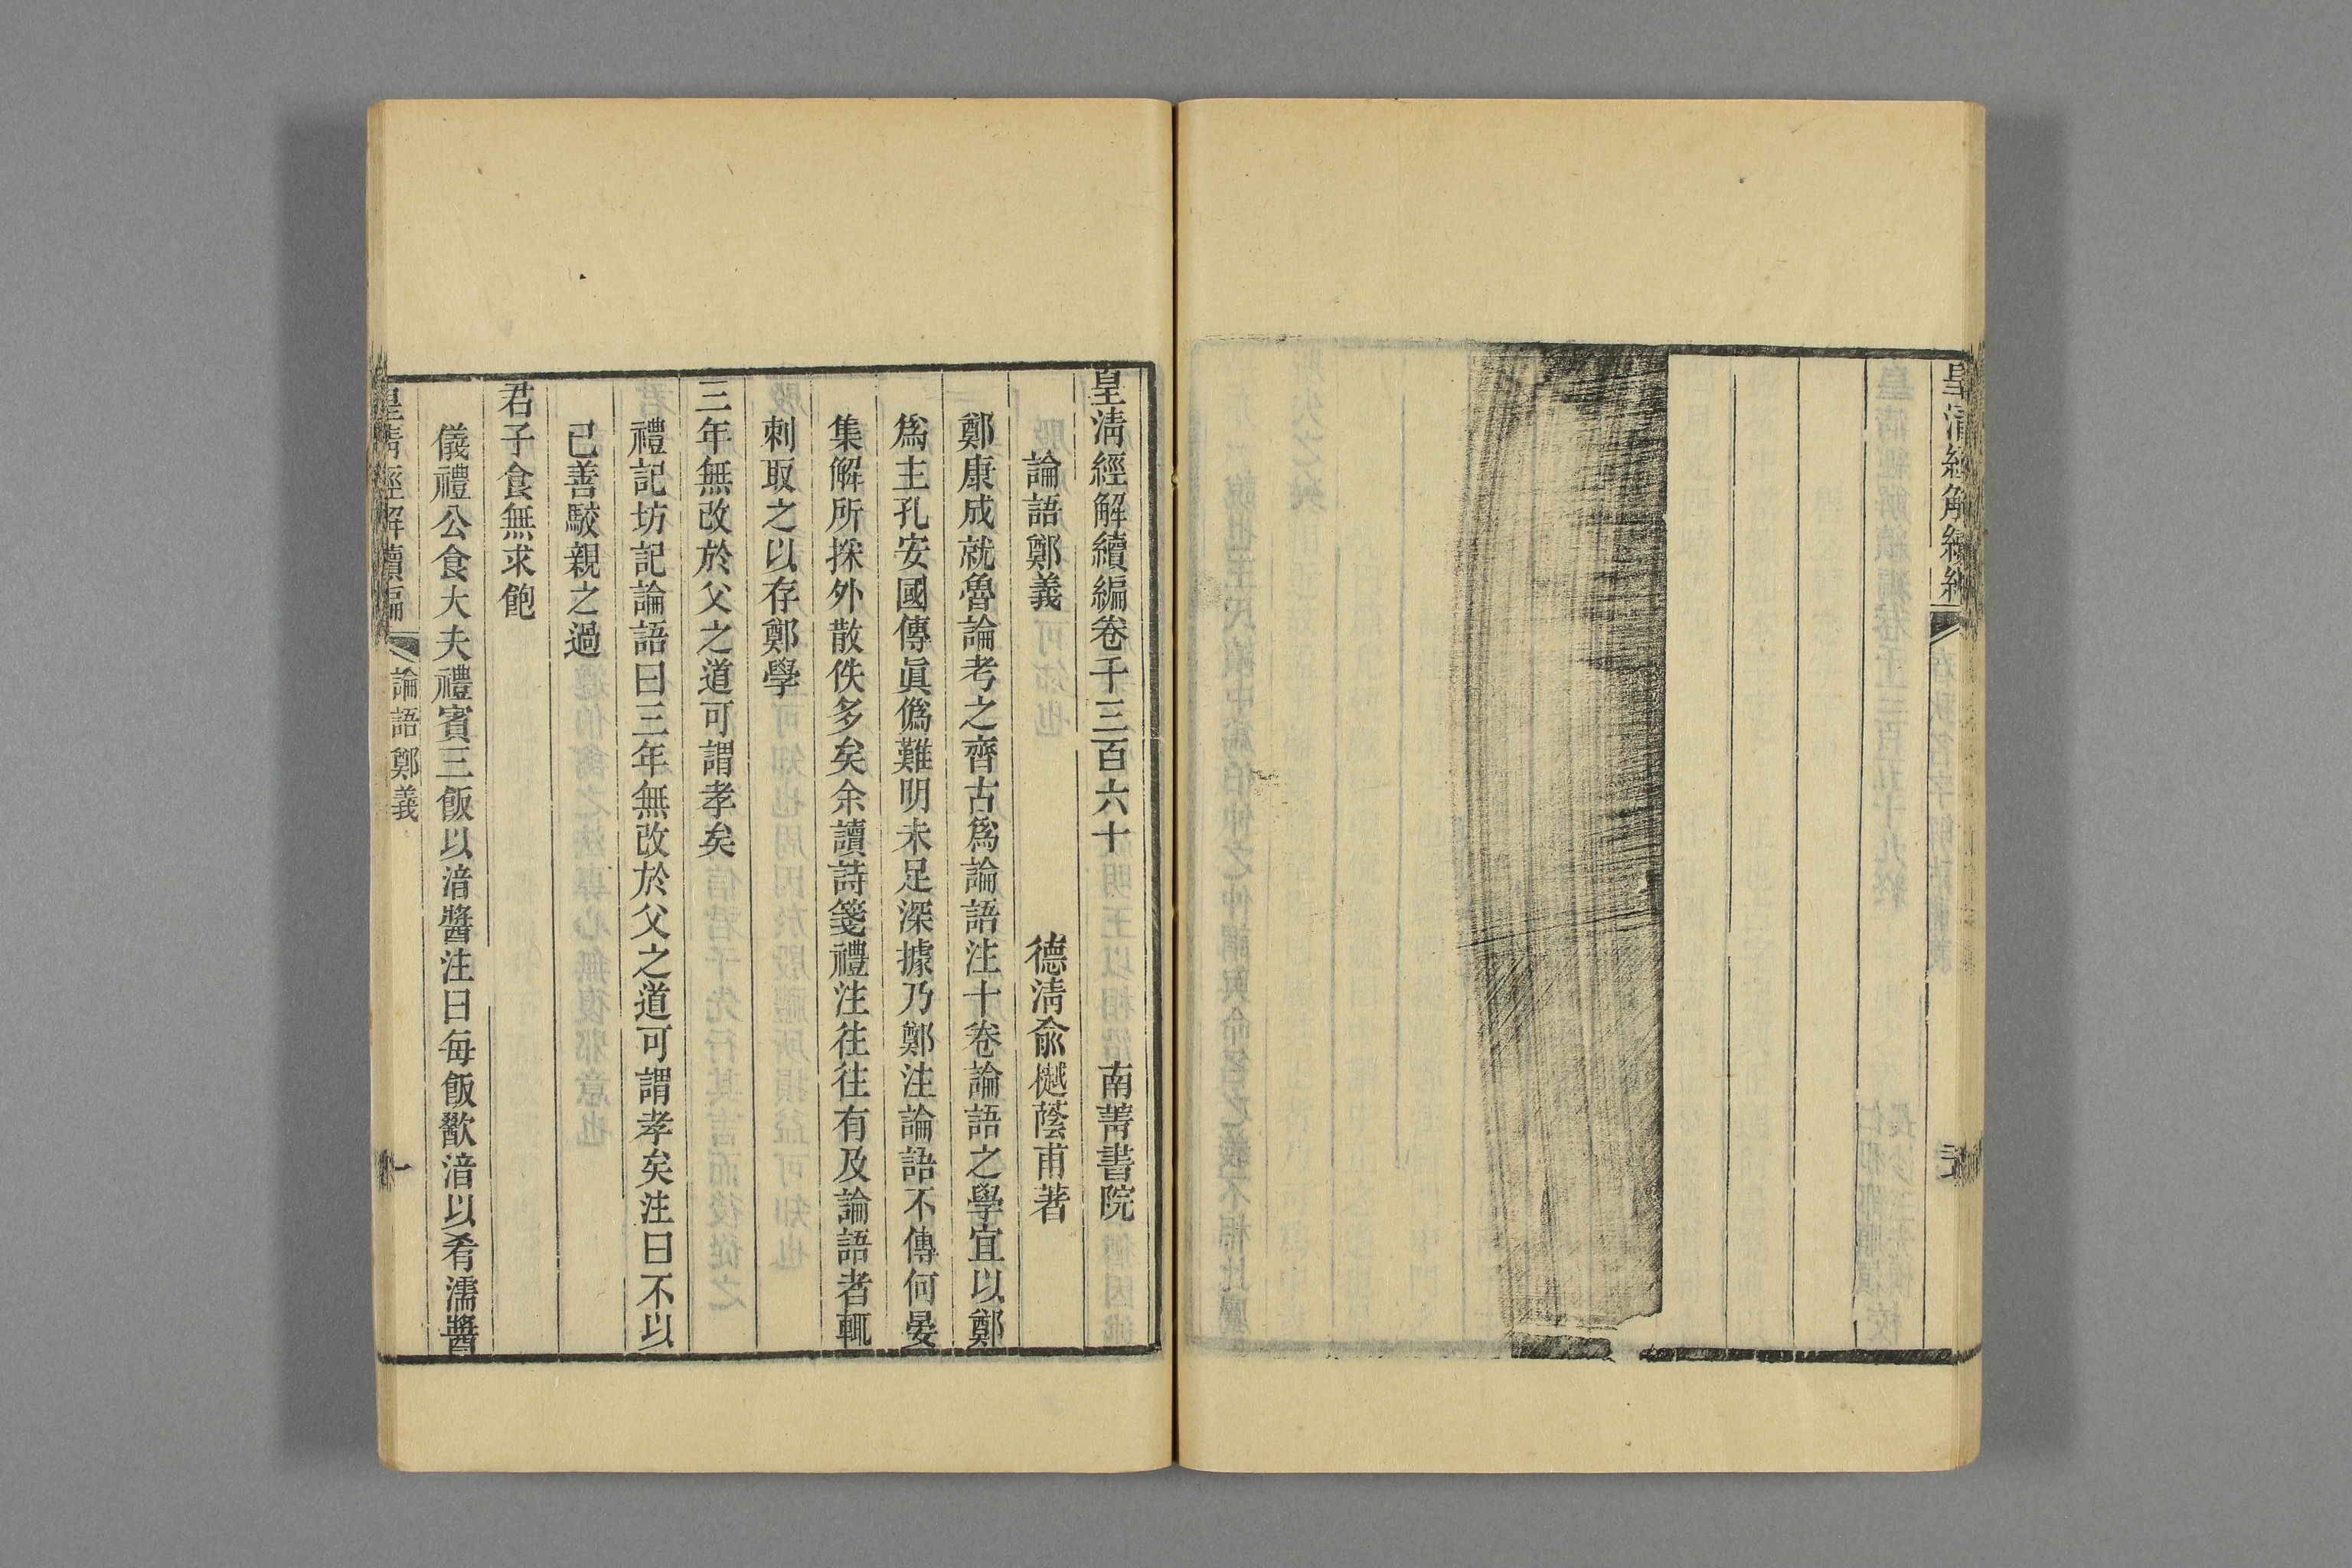 皇清經解續編
皇清經解續編卷千三百六十 南菁書院
論語鄭義 德清俞樾蔭甫著
鄭康成就魯論考之齊古爲論語注十卷論語之學宜以鄭
爲主孔安國傳眞僞難明未足深據乃鄭注論語不傳何晏
集解所採外散佚多矣余讀詩箋禮注往往有及論語者輒
刺取之以存鄭學
三年無改於父之道可謂孝矣
禮記坊記論語曰三年無改於父之道可謂孝矣注曰不以
己善駮親之過
君子食無求飽
儀禮公食大夫禮賓三飯以湆醬注曰每飯歠湆以肴濡醬
皇清經解續編 論語鄭義 一